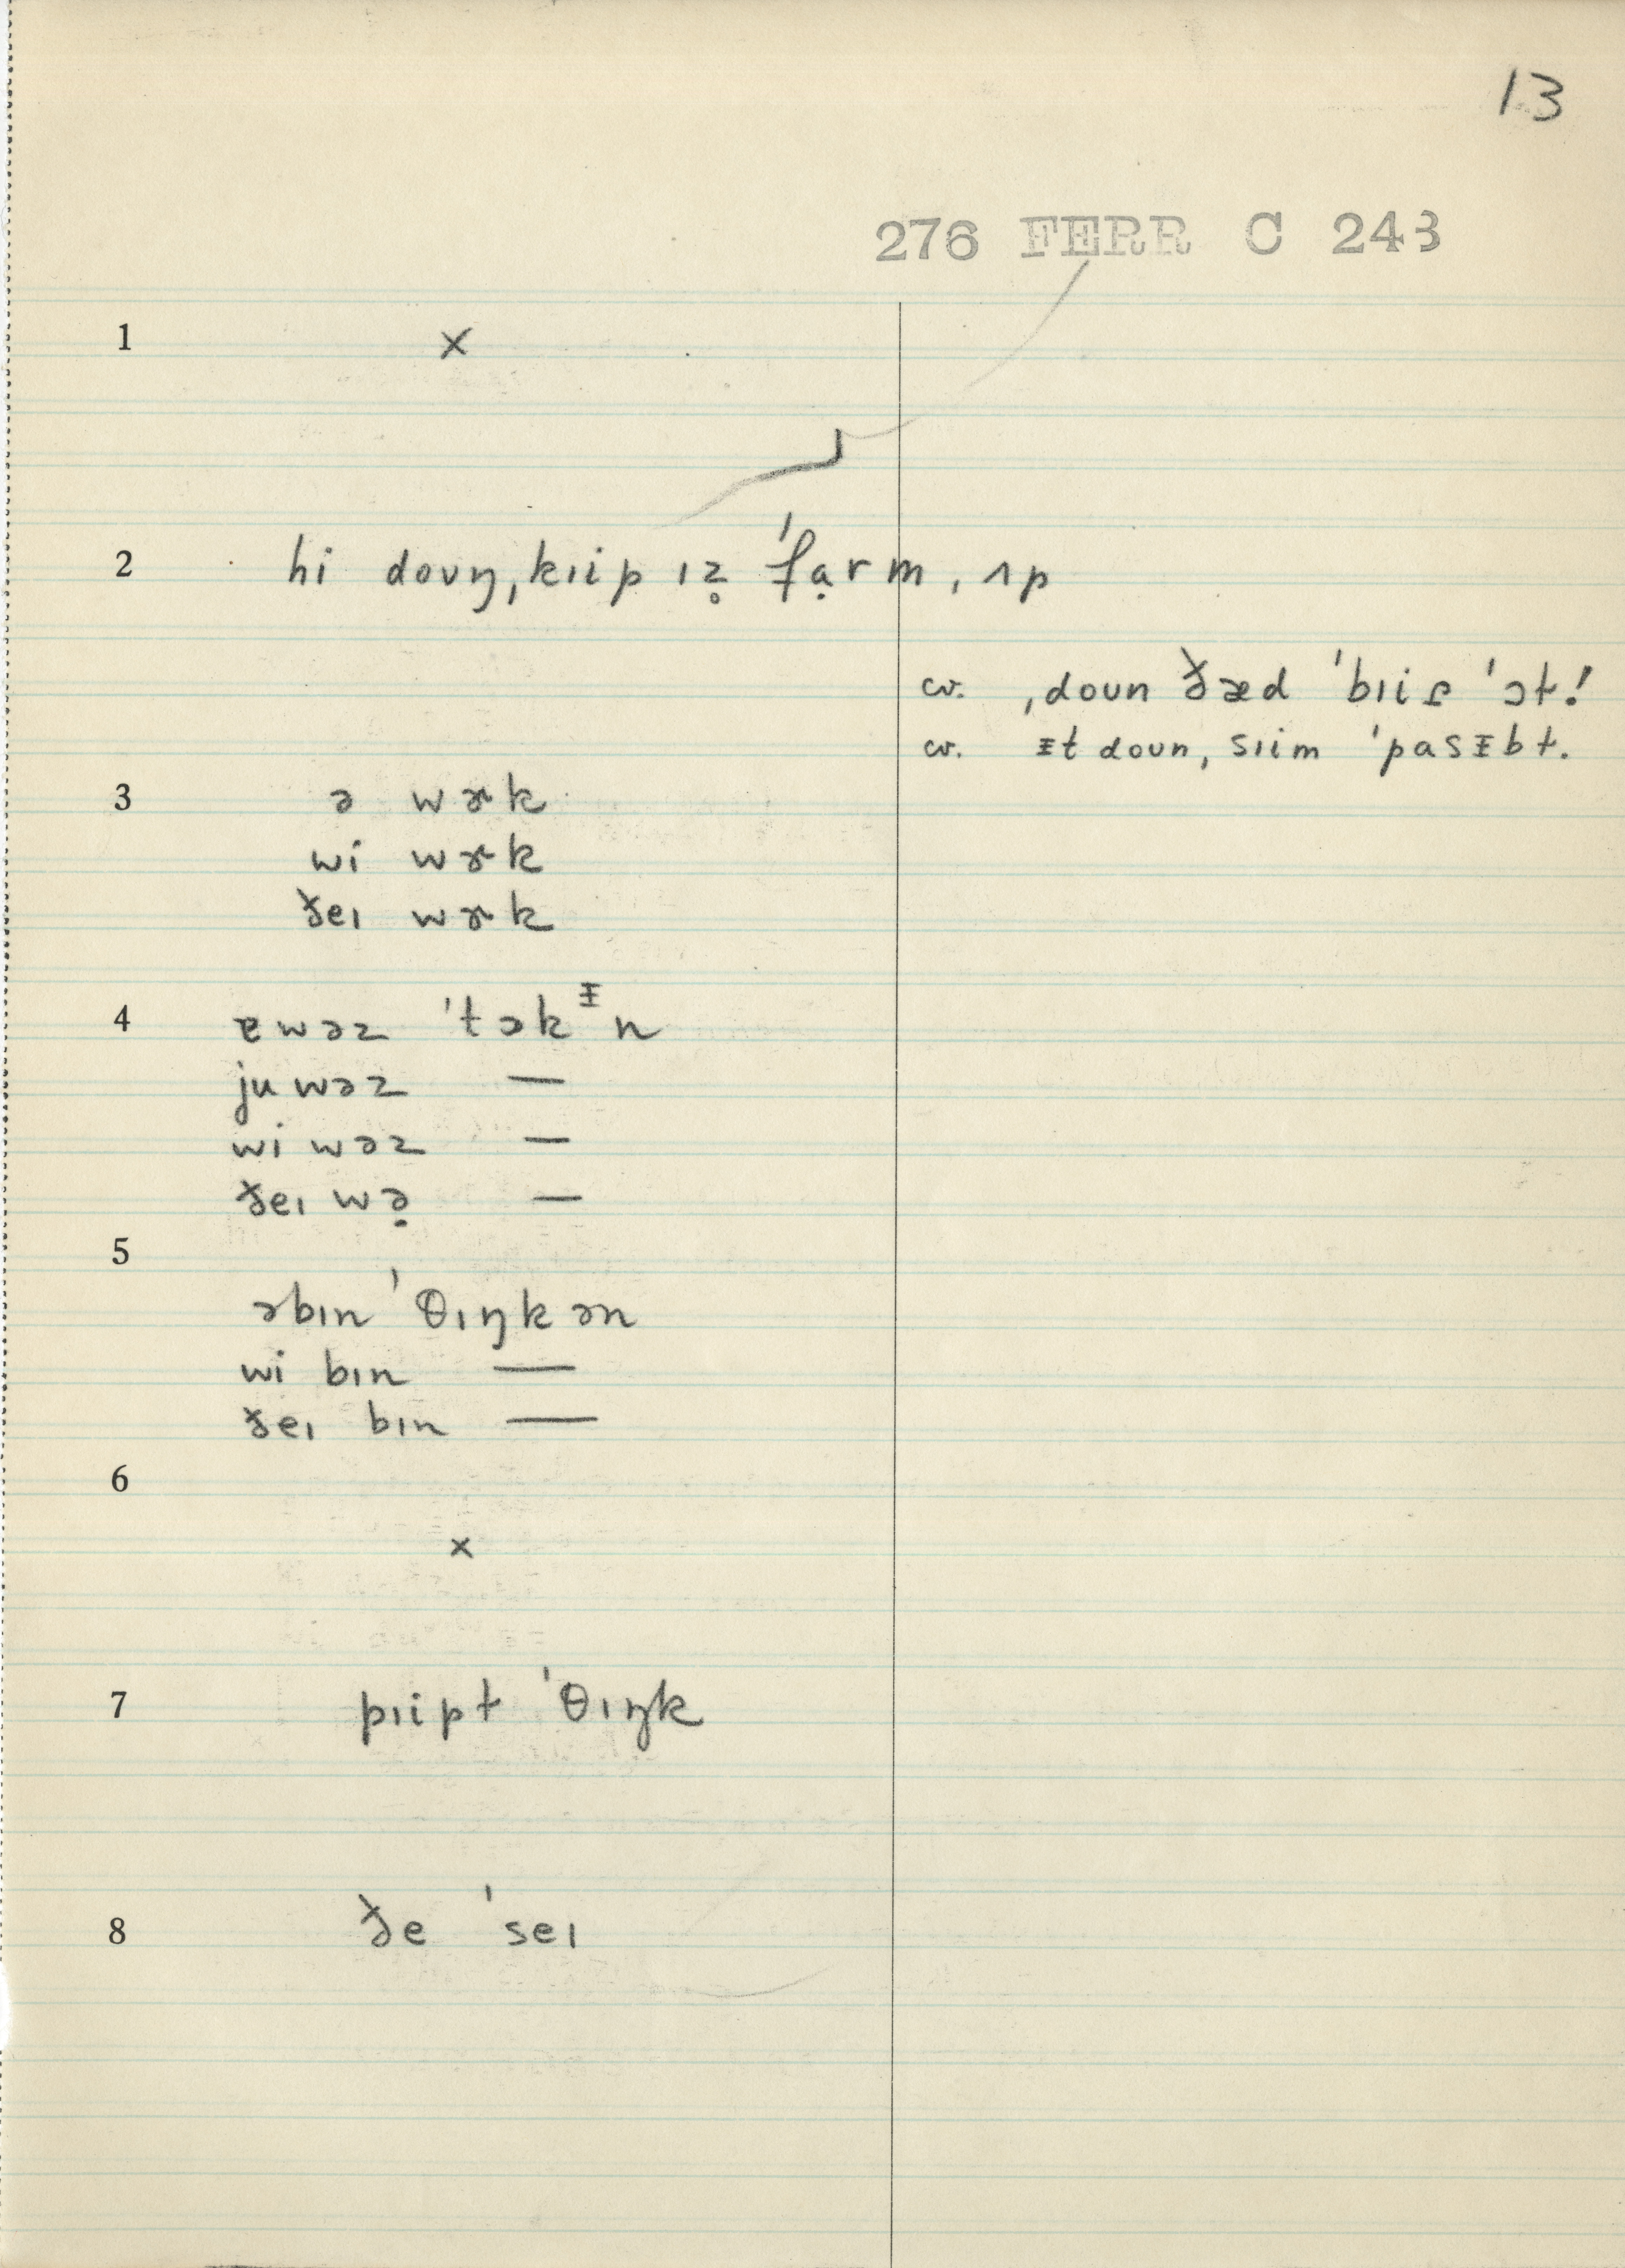 13
276 FERR C 243
1 ×
2 hi doʊŋ ˌkɪip ɪz̥ ˈfạrm ˌʌp
cv. ˌdoun ðæd ˈbɪiɾ̥ ˈɔt!
cv. ᵻt doun ˌsɪim ˈpasᵻbɫ.
3 ə wɚk
wi wɚk
ðeɪ wɚk
4 ɐwəz ˈtɔkᵻn
ju wəz —
wi wəz —
ðeɪ wə̣ —
5
əbɪn ˈθɪŋkən
wi bɪn —
ðeɪ bɪn —
6
×
7 pɪipɫ ˈθɪŋk
8 ðe ˈseɪ